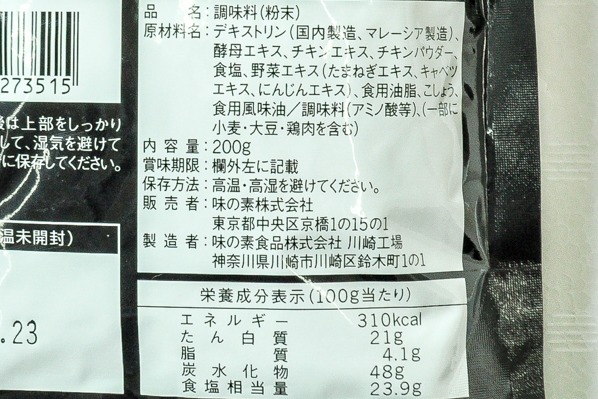 品名:調味料(粉末)
原材料名:デキストリン(国内製造、マレーシア製造)、
酵母エキス、チキンエキス、チキンパウダー、
食塩、野菜エキス(たまねぎエキス、キャベツ
エキス、にんじんエキス)、食用油脂、こしょう、
食用風味油/調味料(アミノ酸等)、(一部に
小麦・大豆・鶏肉を含む)
内容量:200g
賞味期限:欄外左に記載
保存方法:高温・高湿を避けてください。
販売者:味の素株式会社
東京都中央区京橋1の15の1
製造者:味の素食品株式会社 川崎工場
神奈川県川崎市川崎区鈴木町1の1
栄養成分表示(100g当たり)
エネルギー 310kcal
たん白質 21g
脂質 4.1g
炭水化物 48g
食塩相当量 23.9g
273515
後は上部をしっかり
して、湿気を避けて
に保存してください。
温未開封)
.23